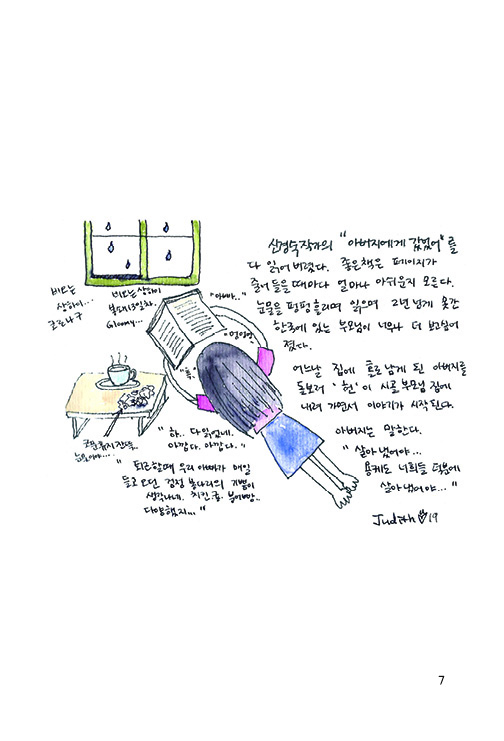 신경숙작가의 "아버지에게 갔었어"를
다 읽어 버렸다. 좋은책은 페이지가
줄어 들을 때마다 얼마나 아쉬운지 모른다.
눈물을 펑펑 흘리며 읽으며 2년 넘게 못간
한국에 있는 부모님이 너무나 더 보고싶어
졌다.
어느날 집에 홀로 남게 된 아버지를
돌보러 '헌'이 시골 부모님 집에
내려 가면서 이야기가 시작된다.
아버지는 말한다.
"살아냈어야...
용케도 너희들 덕분에
살아냈어야..."
Judith 19
비오는
상하이...
코로나 구
비오는 상하이
봉쇄 13일차.
Gloomy...
"아빠.."
"엉엉엉
"흑.
눈물 휴지 잔뜩..
"하.. 다 읽었네.
아깝다. 아깝다."
"퇴근할때 우리 아빠가 매일
들고 오던 검정 봉다리의 기쁨이
생각나네. 치킨. 귤. 붕어빵..
다양했지..."
7